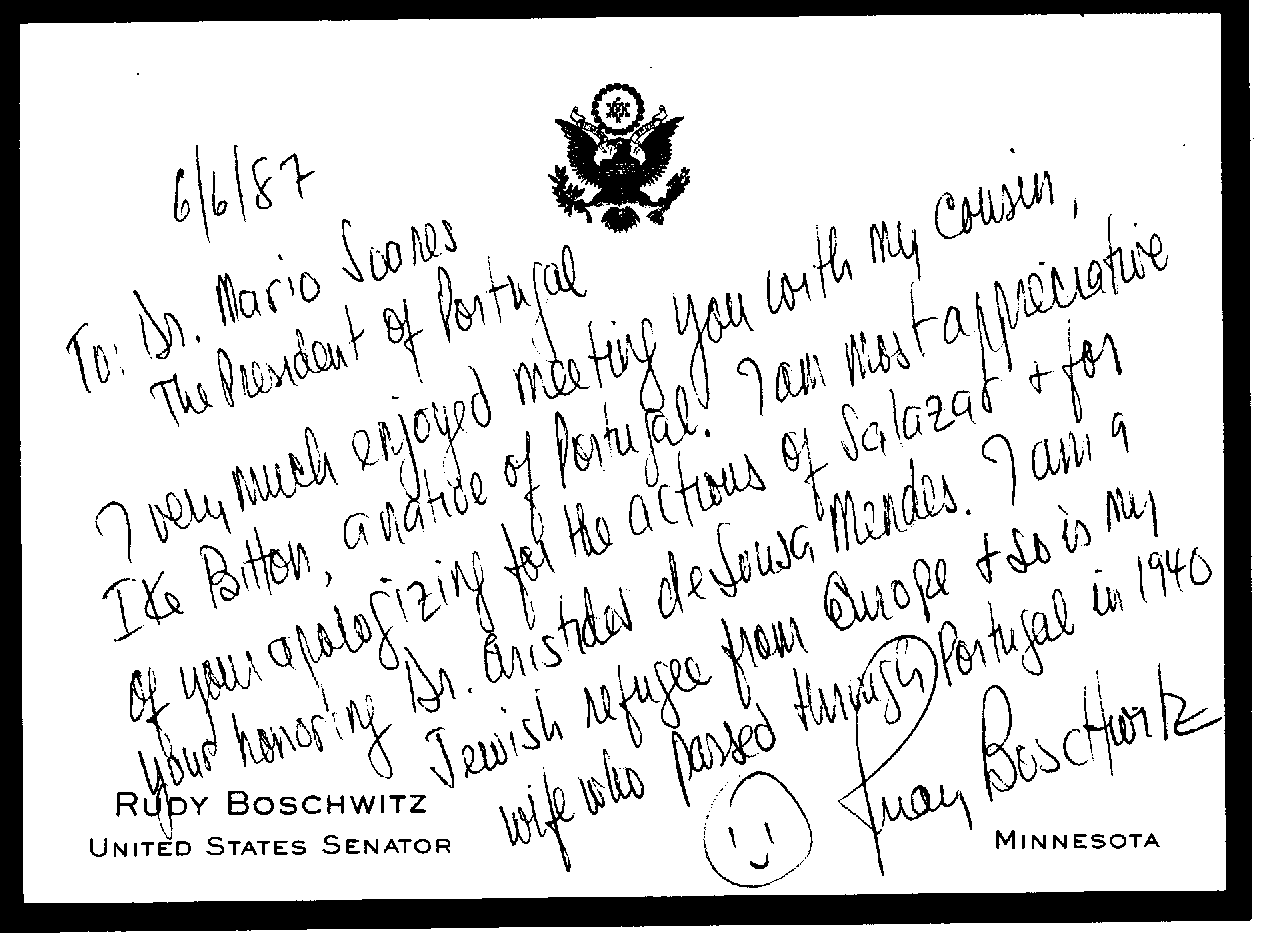 6/6/87
To: Dr. Mario Soares
The President of Portugal
I very much enjoyed meeting you with my cousin,
Ike Bitton, a native of Portugal. I am most appreciative
of your apologizing for the actions of Salazar + for
your honoring Dr. Aristides de Sousa Mendes. I am a
Jewish refugee from Europe + so is my
wife who passed through Portugal in 1940
Rudy Boschwitz
RUDY BOSCHWITZ
UNITED STATES SENATOR
MINNESOTA